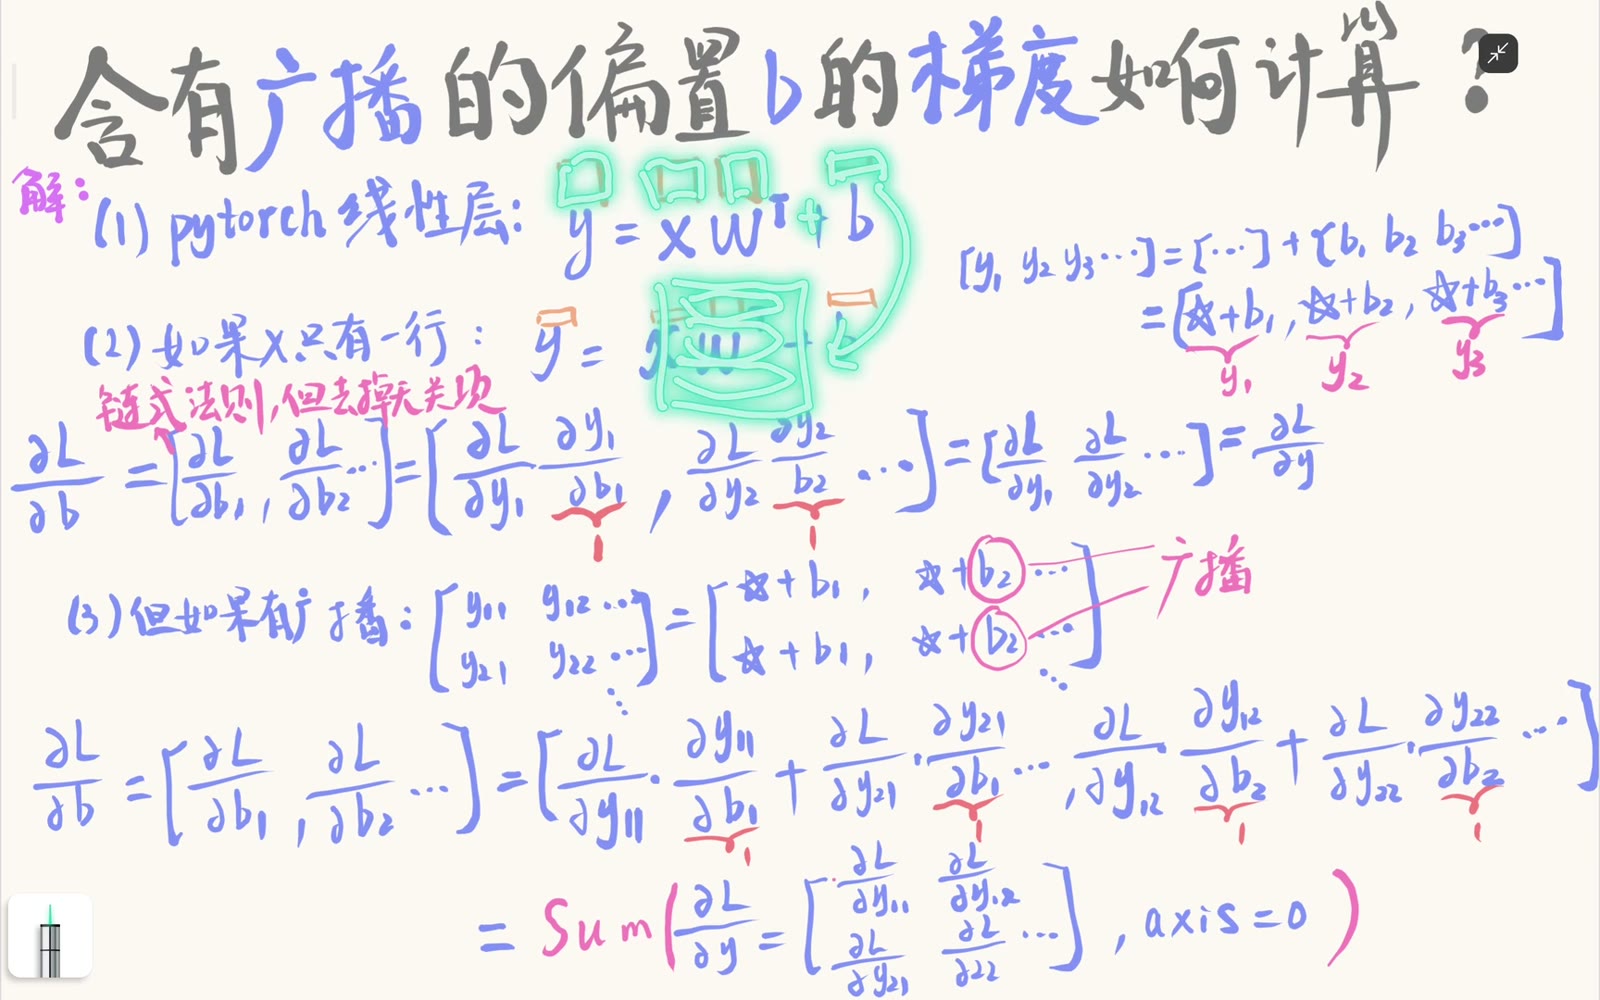 含有广播的偏置b的梯度如何计算?
解:
(1) pytorch 线性层: y = x Wᵀ + b
[y₁ y₂ y₃ ⋯] = [⋯] + [b₁ b₂ b₃ ⋯]
= [☆+b₁, ☆+b₂, ☆+b₃ ⋯]
y₁ y₂ y₃
(2) 如果x只有一行: y = x W +
链式法则,但去掉无关项
∂L/∂b = [∂L/∂b₁, ∂L/∂b₂ ⋯] = [∂L/∂y₁ ∂y₁/∂b₁, ∂L/∂y₂ ∂y₂/b₂ ⋯] = [∂L/∂y₁ ∂L/∂y₂ ⋯] = ∂L/∂y
1 1
(3) 但如果有广播: [y₁₁ y₁₂ ⋯ y₂₁ y₂₂ ⋯] = [☆+b₁, ☆+b₂ ⋯ ☆+b₁, ☆+b₂ ⋯] 广播
∂L/∂b = [∂L/∂b₁, ∂L/∂b₂ ⋯] = [∂L/∂y₁₁ · ∂y₁₁/∂b₁ + ∂L/∂y₂₁ · ∂y₂₁/∂b₁ ⋯, ∂L/∂y₁₂ · ∂y₁₂/∂b₂ + ∂L/∂y₂₂ · ∂y₂₂/∂b₂ ⋯]
1 1 1 1
= Sum(∂L/∂y = [∂L/∂y₁₁ ∂L/∂y₁₂ ∂L/∂y₂₁ ∂L/∂22 ⋯], axis=0)